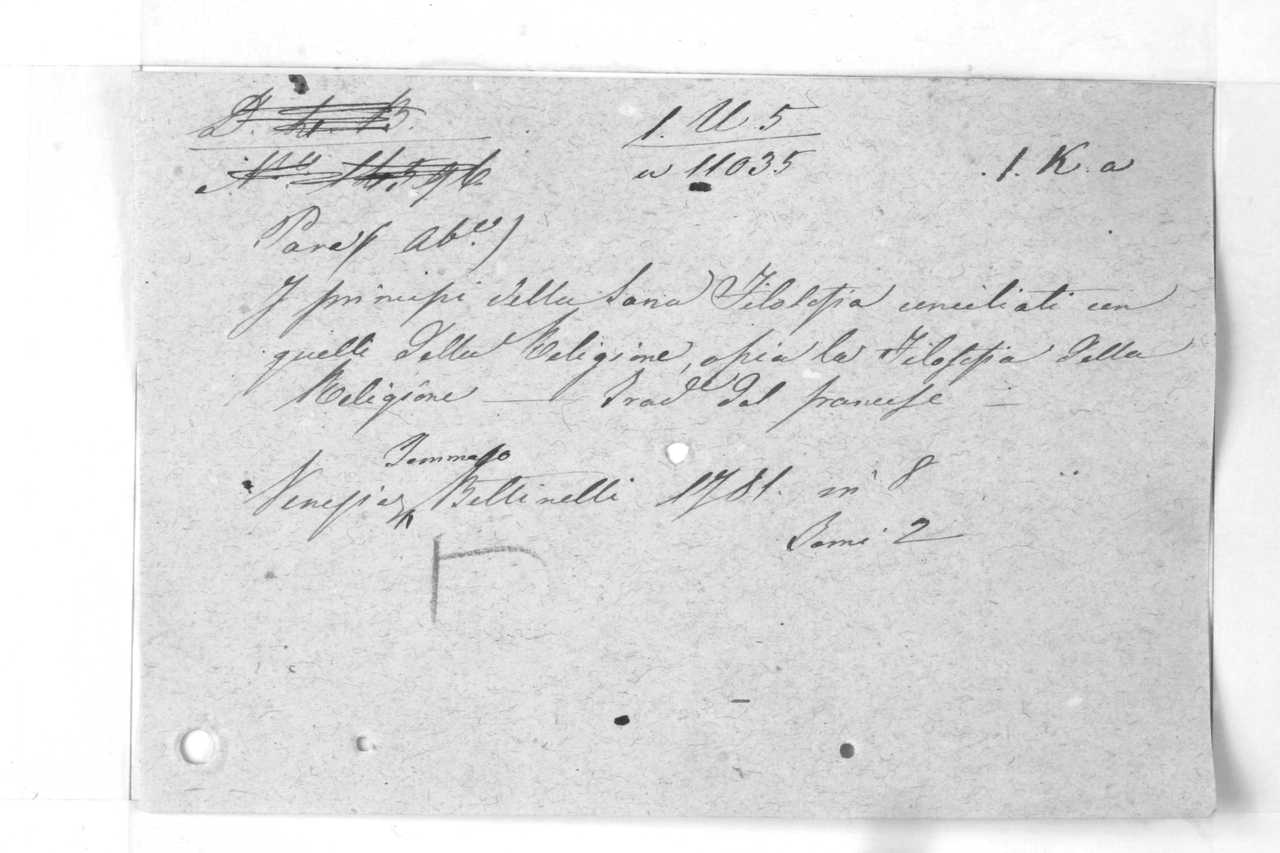 D. 4. B. 1. U. 5
N.ro 14596 a 11035 1. K. a
Para (Ab.e)
I principi della Sana Filosofia conciliati con
quelli della Religione, ossia la Filosofia della
Religione — Trad.e dal francese —
Tommaso
Venezia Bettinelli 1781. in 8
Tomi 2